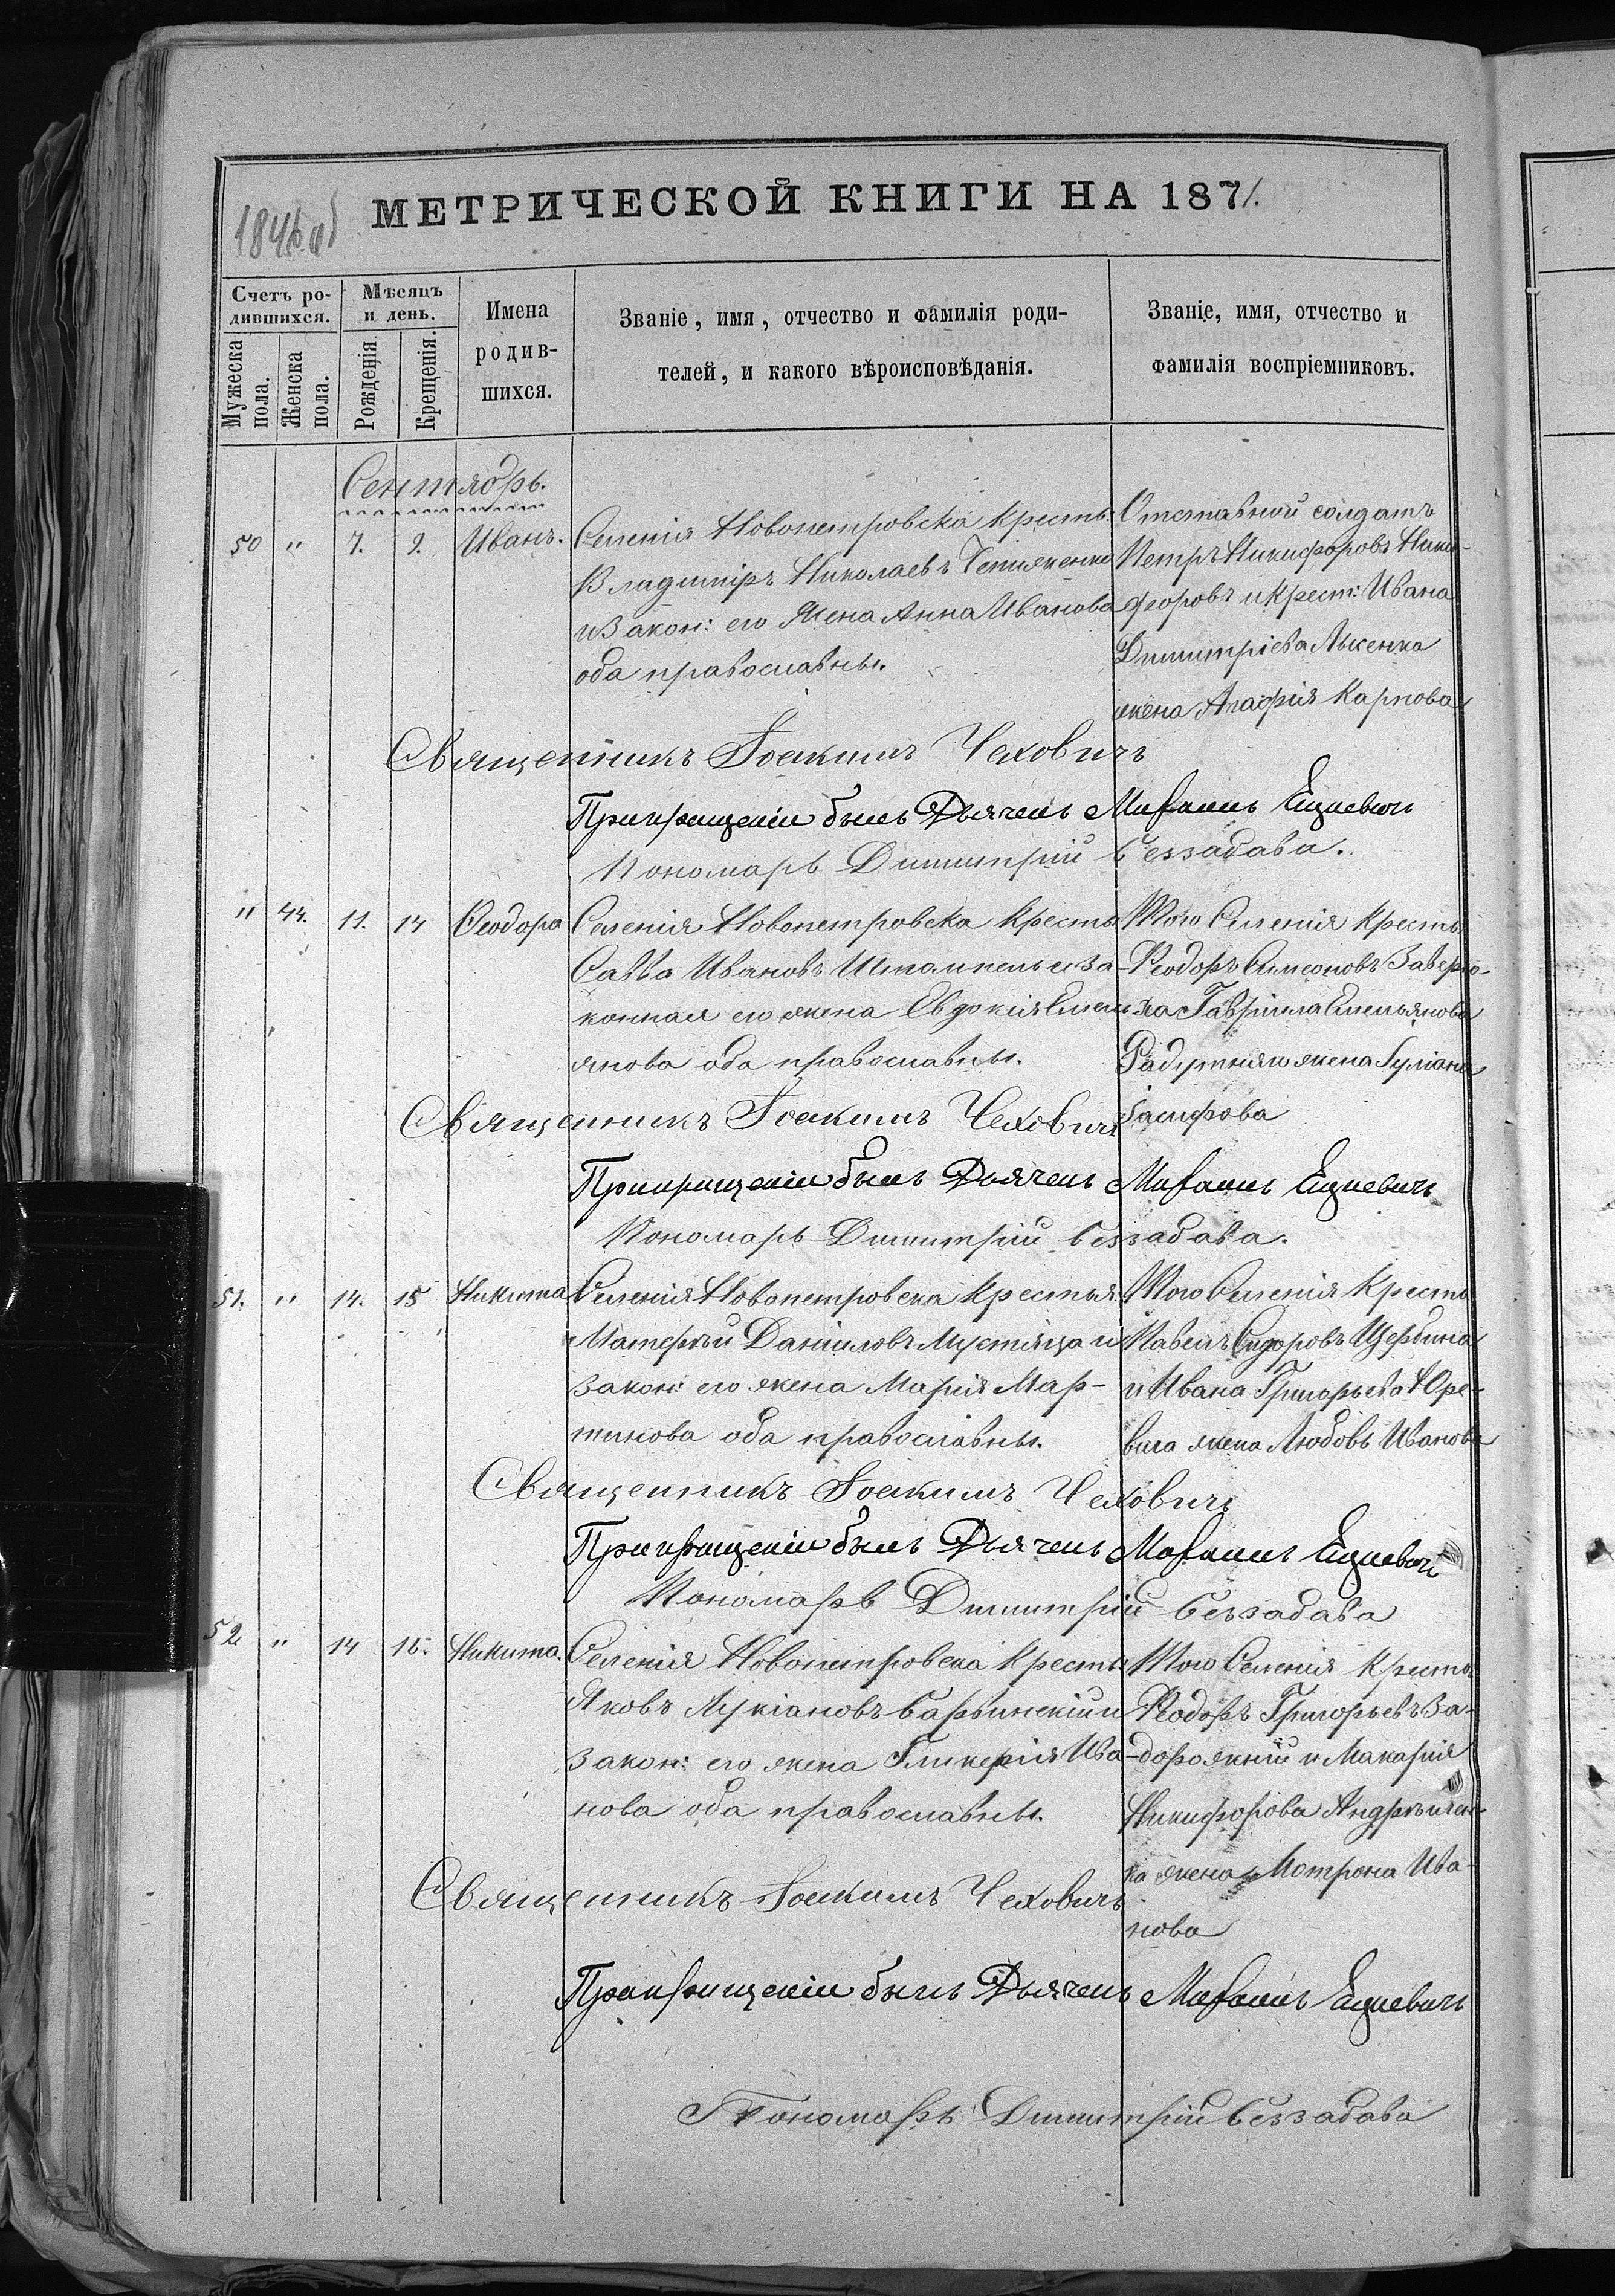 МЕТРИЧЕСКОЙ КНИГИ НА 1871.
Счетъ ро-
дившихся.
Мужеска
пола.
Женска
пола.
Мѣсяцъ
и день.
Рожденія
Крещенія.
Имена
родив-
шихся.
Званіе, имя, отчество и фамилія роди-
телей, и какого вѣроисповѣданія.
Званіе, имя, отчество и
фамилія воспріемниковъ.
Сентябрь.
50 " 7. 9. Иванъ.
Селенія Новопетровска Кресть:
Владиміръ Николаевъ
и закон: его жена Анна Иванова
оба православны.
Отставной солдатъ
Петръ Никифоровъ Ники-
форовъ и Крест: Ивана
Димитріева Лысенка
жена Агафія Карпова
Священникъ Іоакимъ Чеховичъ
При крещеніи былъ Дьячекъ Михаилъ
Пономарь Димитрій Беззабава.
" 44. 11. 14 Ѳеодора
Селенія Новопетровска Кресть
Савва Ивановъ Штомпель и за-
конная его жена Евдокія Емель
янова оба православны.
Того Селенія Кресть
Ѳеодоръ Симеоновъ
Гавріила Емельянова
жена Іуліана
Священникъ Іоакимъ Чеховичъ
При крещеніи былъ Дьячекъ Михаилъ
Пономарь Димитрій Беззабава.
51. " 14. 15 Никита
Селенія Новопетровска Крестья:
Даніиловъ и
закон: его жена Марія Мар-
тинова оба православны.
Того Селенія Кресть
Павелъ Сидоровъ Щербина
и Ивана Григорьева Юре-
вича жена Любовь Иванова
Священникъ Іоакимъ Чеховичъ
При крещеніи былъ Дьячекъ Михаилъ
Пономарь Димитрій Беззабава
52 " 14 Никита.
Селенія Новопетровска Кресть:
Яковъ Лукіановъ и
закон: его жена Гликерія Ива-
нова оба православны.
Того Селенія Кресть
Ѳеодоръ Григорьевъ За-
дорожній и Макарія
Никифорова Андрѣичен-
ка жена Мотрона Ива-
нова
Священникъ Іоакимъ Чеховичъ
При крещеніи былъ Дьячекъ Михаилъ
Пономарь Димитрій Беззабава